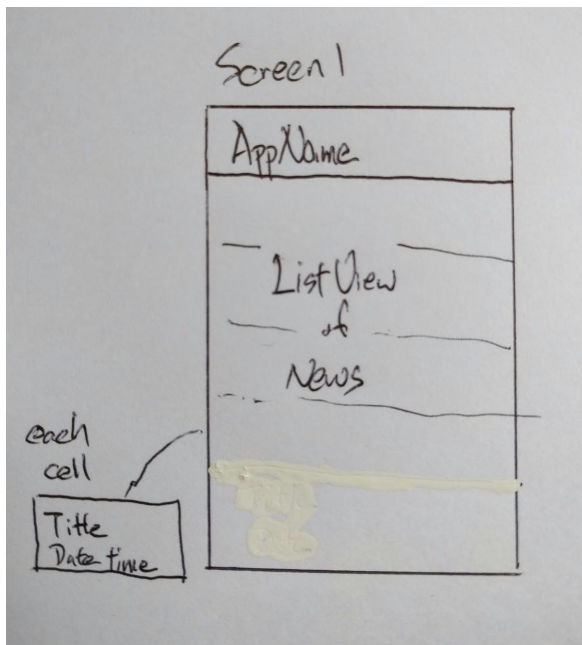 Screen 1
AppName
ListView
of
News
each
cell
Title
Date time